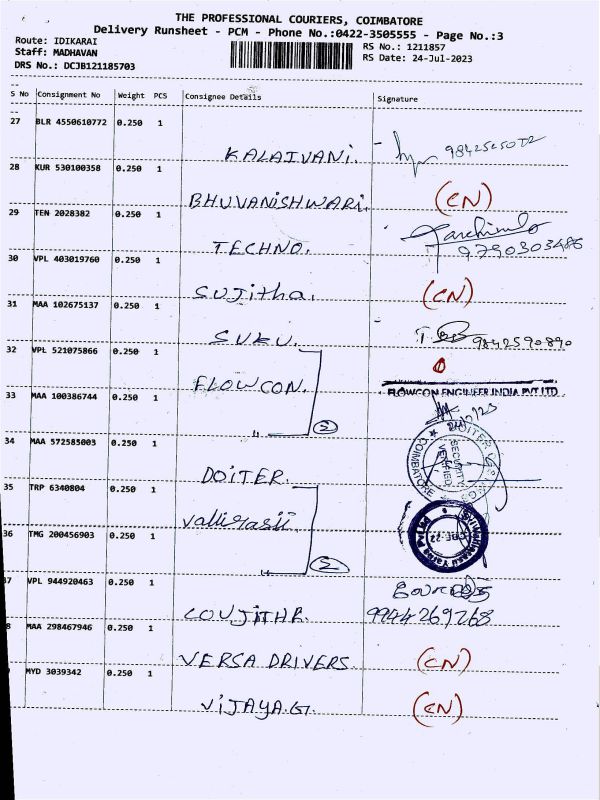 THE PROFESSIONAL COURIERS, COIMBATORE
Delivery Runsheet - PCM - Phone No.:0422-3505555 - Page No.:3
Route: IDIKARAI RS No.: 1211857
Staff: MADHAVAN RS Date: 24-Jul-2023
DRS No.: DCJB121185703
S No Consignment No Weight PCS Consignee Details Signature
27 BLR 4550610772 0.250 1
KALAIVANI.
28 KUR 530100358 0.250 1
BHUVANISHWARI. (CN)
29 TEN 2028382 0.250 1
TECHNO. 9790303486
30 VPL 403019760 0.250 1
Sujitha. (CN)
31 MAA 102675137 0.250 1
SUKU. 9842590890
32 VPL 521075866 0.250 1
FLOWCON. FLOWCON ENGINEER INDIA PVT LTD
33 MAA 100386744 0.250 1
2
34 MAA 572585003 0.250 1
DOITER. COIMBATORE SECURITY VERIFIED
35 TRP 6340804 0.250 1
36 TMG 200456903 0.250 1
2
37 VPL 944920463 0.250 1
9944269268
8 MAA 298467946 0.250 1
VERSA DRIVERS. (CN)
MYD 3039342 0.250 1
VIJAYA.G. (CN)